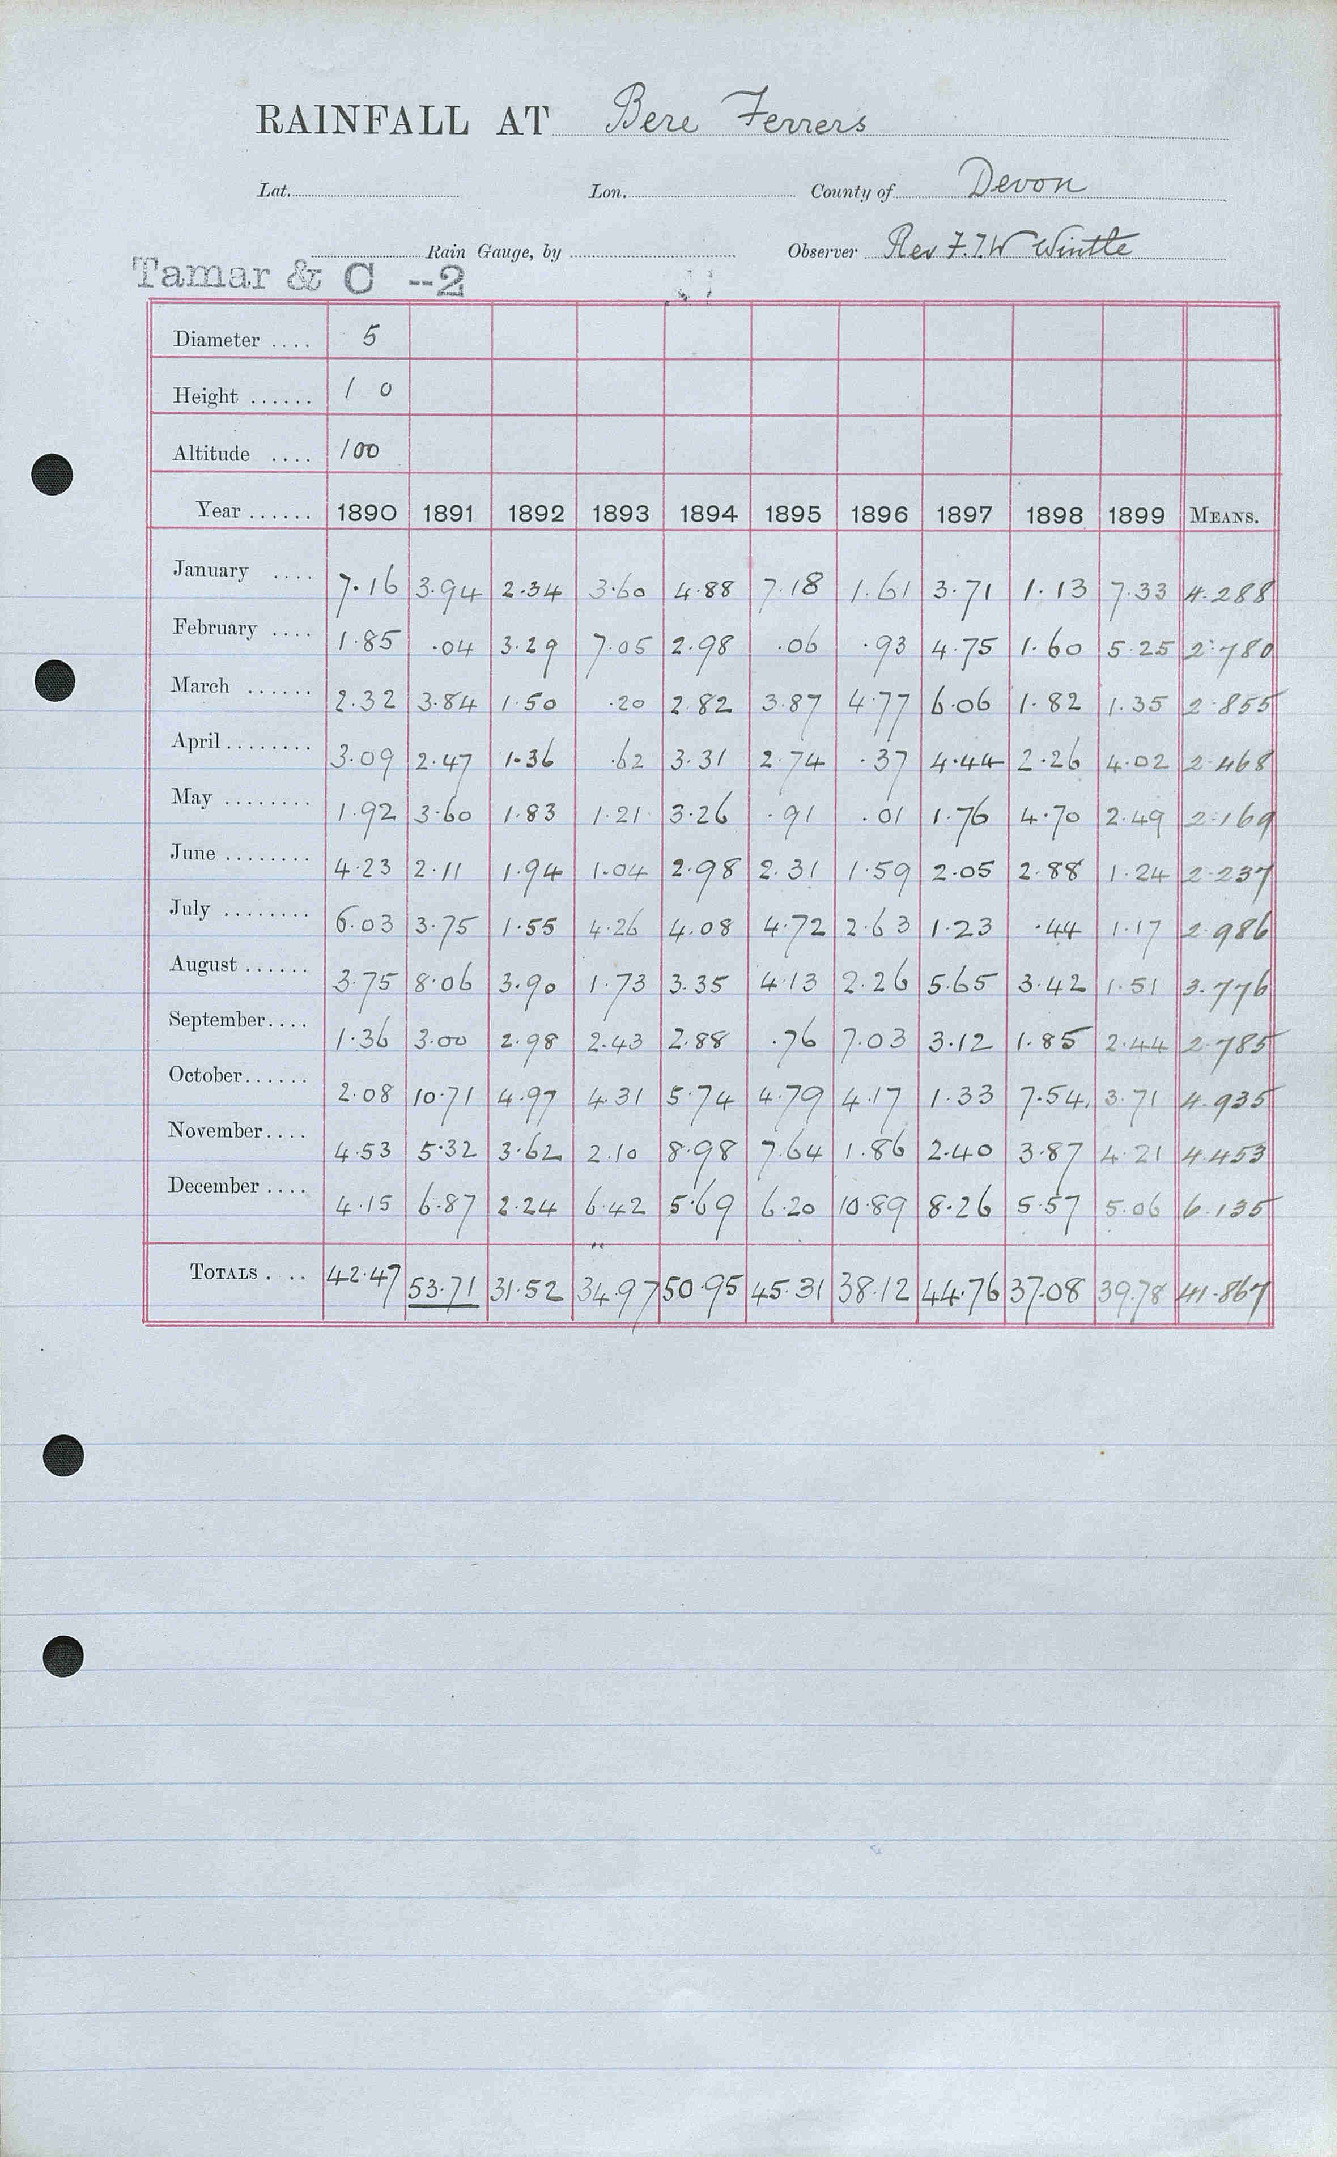 RAINFALL AT Bere Ferrers
Lat. Lon. County of Devon
Rain Gauge, by Observer Rev F.T.W Wintle
Tamar & C --2
Diameter .... 5
Height ...... 1 0
Altitude .... 100
Year ...... 1890 1891 1892 1893 1894 1895 1896 1897 1898 1899 MEANS.
January .... 7.16 3.94 2.34 3.60 4.88 7.18 1.61 3.71 1.13 7.33 4.288
February .... 1.85 .04 3.29 7.05 2.98 .06 .93 4.75 1.60 5.25 2.780
March ...... 2.32 3.84 1.50 .20 2.82 3.87 4.77 6.06 1.82 1.35 2.855
April ........ 3.09 2.47 1.36 .62 3.31 2.74 .37 4.44 2.26 4.02 2.468
May ........ 1.92 3.60 1.83 1.21 3.26 .91 .01 1.76 4.70 2.49 2.169
June ........ 4.23 2.11 1.94 1.04 2.98 2.31 1.59 2.05 2.88 1.24 2.237
July ........ 6.03 3.75 1.55 4.26 4.08 4.72 2.63 1.23 .44 1.17 2.986
August ...... 3.75 8.06 3.90 1.73 3.35 4.13 2.26 5.65 3.42 1.51 3.776
September .... 1.36 3.00 2.98 2.43 2.88 .76 7.03 3.12 1.85 2.44 2.785
October ...... 2.08 10.71 4.97 4.31 5.74 4.79 4.17 1.33 7.54 3.71 4.935
November .... 4.53 5.32 3.62 2.10 8.98 7.64 1.86 2.40 3.87 4.21 4.453
December .... 4.15 6.87 2.24 6.42 5.69 6.20 10.89 8.26 5.57 5.06 6.135
TOTALS . .. 42.47 53.71 31.52 34.97 50.95 45.31 38.12 44.76 37.08 39.78 41.867